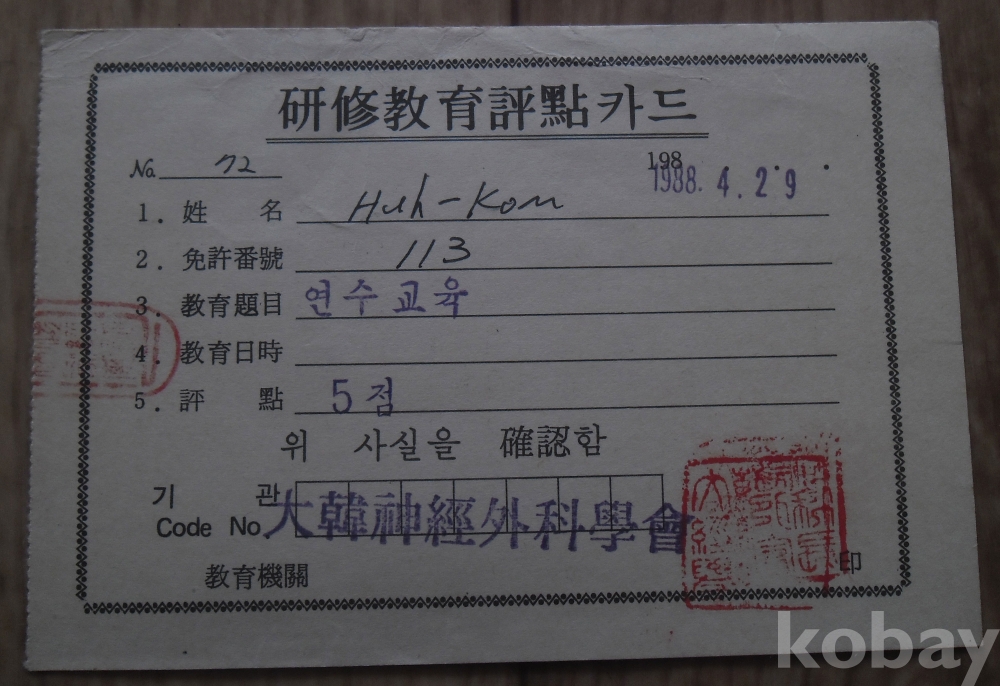 研修敎育評點카드
No. 72
198 . .
1988. 4. 2.9
1. 姓 名 Huh-Kon
2. 免許番號 113
3. 敎育題目 연수교육
4. 敎育日時
5. 評 點 5점
위 사실을 確認함
기 관
Code No
大韓神經外科學會
敎育機關 印
kobay